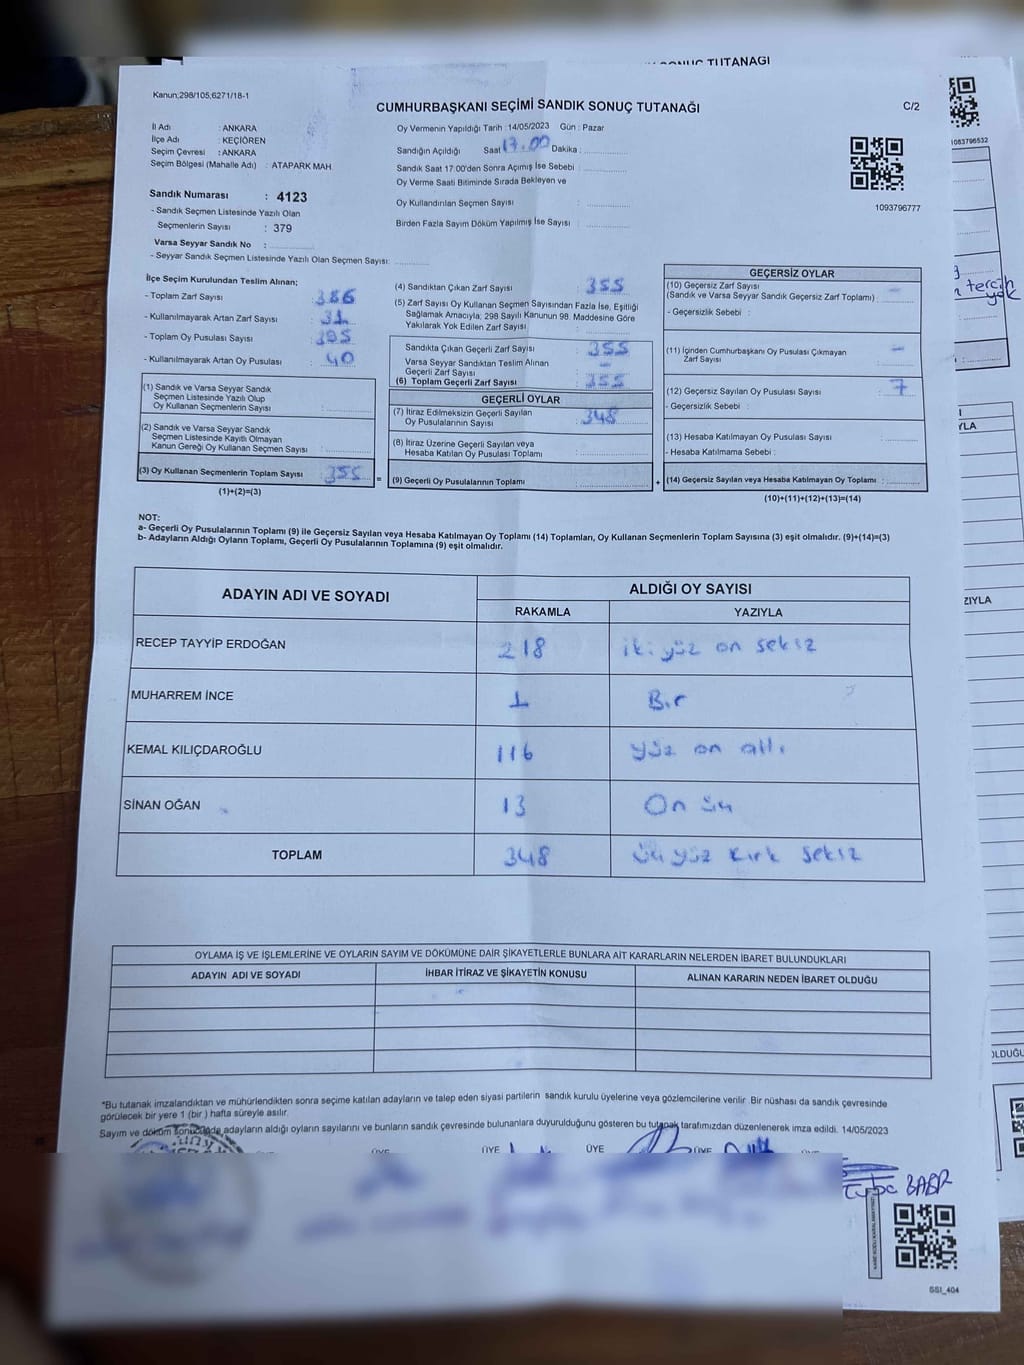 SONUÇ TUTANAĞI
Kanun;298/105,6271/18-1
CUMHURBAŞKANI SEÇİMİ SANDIK SONUÇ TUTANAĞI
C/2
İl Adı : ANKARA
İlçe Adı : KEÇİÖREN
Seçim Çevresi : ANKARA
Seçim Bölgesi (Mahalle Adı) : ATAPARK MAH.
Sandık Numarası : 4123
- Sandık Seçmen Listesinde Yazılı Olan
Seçmenlerin Sayısı : 379
Varsa Seyyar Sandık No :
- Seyyar Sandık Seçmen Listesinde Yazılı Olan Seçmen Sayısı:
Oy Vermenin Yapıldığı Tarih :14/05/2023 Gün : Pazar
Sandığın Açıldığı Saat 17.00 Dakika :
Sandık Saat 17:00'den Sonra Açımış İse Sebebi :
Oy Verme Saati Bitiminde Sırada Bekleyen ve
Oy Kullandırılan Seçmen Sayısı :
Birden Fazla Sayım Döküm Yapılmış İse Sayısı :
1093796777
1083796532
İlçe Seçim Kurulundan Teslim Alınan;
- Toplam Zarf Sayısı : 386
- Kullanılmayarak Artan Zarf Sayısı : 31
- Toplam Oy Pusulası Sayısı : 395
- Kullanılmayarak Artan Oy Pusulası : 40
(1) Sandık ve Varsa Seyyar Sandık
Seçmen Listesinde Yazılı Olup
Oy Kullanan Seçmenlerin Sayısı :
(2) Sandık ve Varsa Seyyar Sandık
Seçmen Listesinde Kayıtlı Olmayan
Kanun Gereği Oy Kullanan Seçmen Sayısı :
(3) Oy Kullanan Seçmenlerin Toplam Sayısı : 355
(1)+(2)=(3)
(4) Sandıktan Çıkan Zarf Sayısı : 355
(5) Zarf Sayısı Oy Kullanan Seçmen Sayısından Fazla İse, Eşitliği
Sağlamak Amacıyla; 298 Sayılı Kanunun 98. Maddesine Göre
Yakılarak Yok Edilen Zarf Sayısı :
Sandıkta Çıkan Geçerli Zarf Sayısı : 355
Varsa Seyyar Sandıktan Teslim Alınan
Geçerli Zarf Sayısı : -
(6) Toplam Geçerli Zarf Sayısı : 355
GEÇERLİ OYLAR
(7) İtiraz Edilmeksizin Geçerli Sayılan
Oy Pusulalarının Sayısı : 348
(8) İtiraz Üzerine Geçerli Sayılan veya
Hesaba Katılan Oy Pusulası Toplamı :
= (9) Geçerli Oy Pusulalarının Toplamı :
GEÇERSİZ OYLAR
(10) Geçersiz Zarf Sayısı
(Sandık ve Varsa Seyyar Sandık Geçersiz Zarf Toplamı) : -
- Geçersizlik Sebebi :
(11) İçinden Cumhurbaşkanı Oy Pusulası Çıkmayan
Zarf Sayısı : -
(12) Geçersiz Sayılan Oy Pusulası Sayısı : 7
- Geçersizlik Sebebi :
(13) Hesaba Katılmayan Oy Pusulası Sayısı :
- Hesaba Katılmama Sebebi :
+ (14) Geçersiz Sayılan veya Hesaba Katılmayan Oy Toplamı :
(10)+(11)+(12)+(13)=(14)
NOT:
a- Geçerli Oy Pusulalarının Toplamı (9) ile Geçersiz Sayılan veya Hesaba Katılmayan Oy Toplamı (14) Toplamları, Oy Kullanan Seçmenlerin Toplam Sayısına (3) eşit olmalıdır. (9)+(14)=(3)
b- Adayların Aldığı Oyların Toplamı, Geçerli Oy Pusulalarının Toplamına (9) eşit olmalıdır.
ADAYIN ADI VE SOYADI
ALDIĞI OY SAYISI
RAKAMLA YAZIYLA
RECEP TAYYİP ERDOĞAN 218 iki yüz on sekiz
MUHARREM İNCE 1 Bir
KEMAL KILIÇDAROĞLU 116 yüz on altı
SİNAN OĞAN 13 On üç
TOPLAM 348 üç yüz kırk sekiz
OYLAMA İŞ VE İŞLEMLERİNE VE OYLARIN SAYIM VE DÖKÜMÜNE DAİR ŞİKAYETLERLE BUNLARA AİT KARARLARIN NELERDEN İBARET BULUNDUKLARI
ADAYIN ADI VE SOYADI İHBAR İTİRAZ VE ŞİKAYETİN KONUSU ALINAN KARARIN NEDEN İBARET OLDUĞU
*Bu tutanak imzalandıktan ve mühürlendikten sonra seçime katılan adayların ve talep eden siyasi partilerin sandık kurulu üyelerine veya gözlemcilerine verilir. Bir nüshası da sandık çevresinde
görülecek bir yere 1 (bir ) hafta süreyle asılır.
Sayım ve döküm sonucunda adayların aldığı oyların sayılarını ve bunların sandık çevresinde bulunanlara duyurulduğunu gösteren bu tutanak tarafımızdan düzenlenerek imza edildi. 14/05/2023
ÜYE ÜYE ÜYE ÜYE
SS1_404
tercih
yok
YLA
YAZIYLA
OLDUĞU